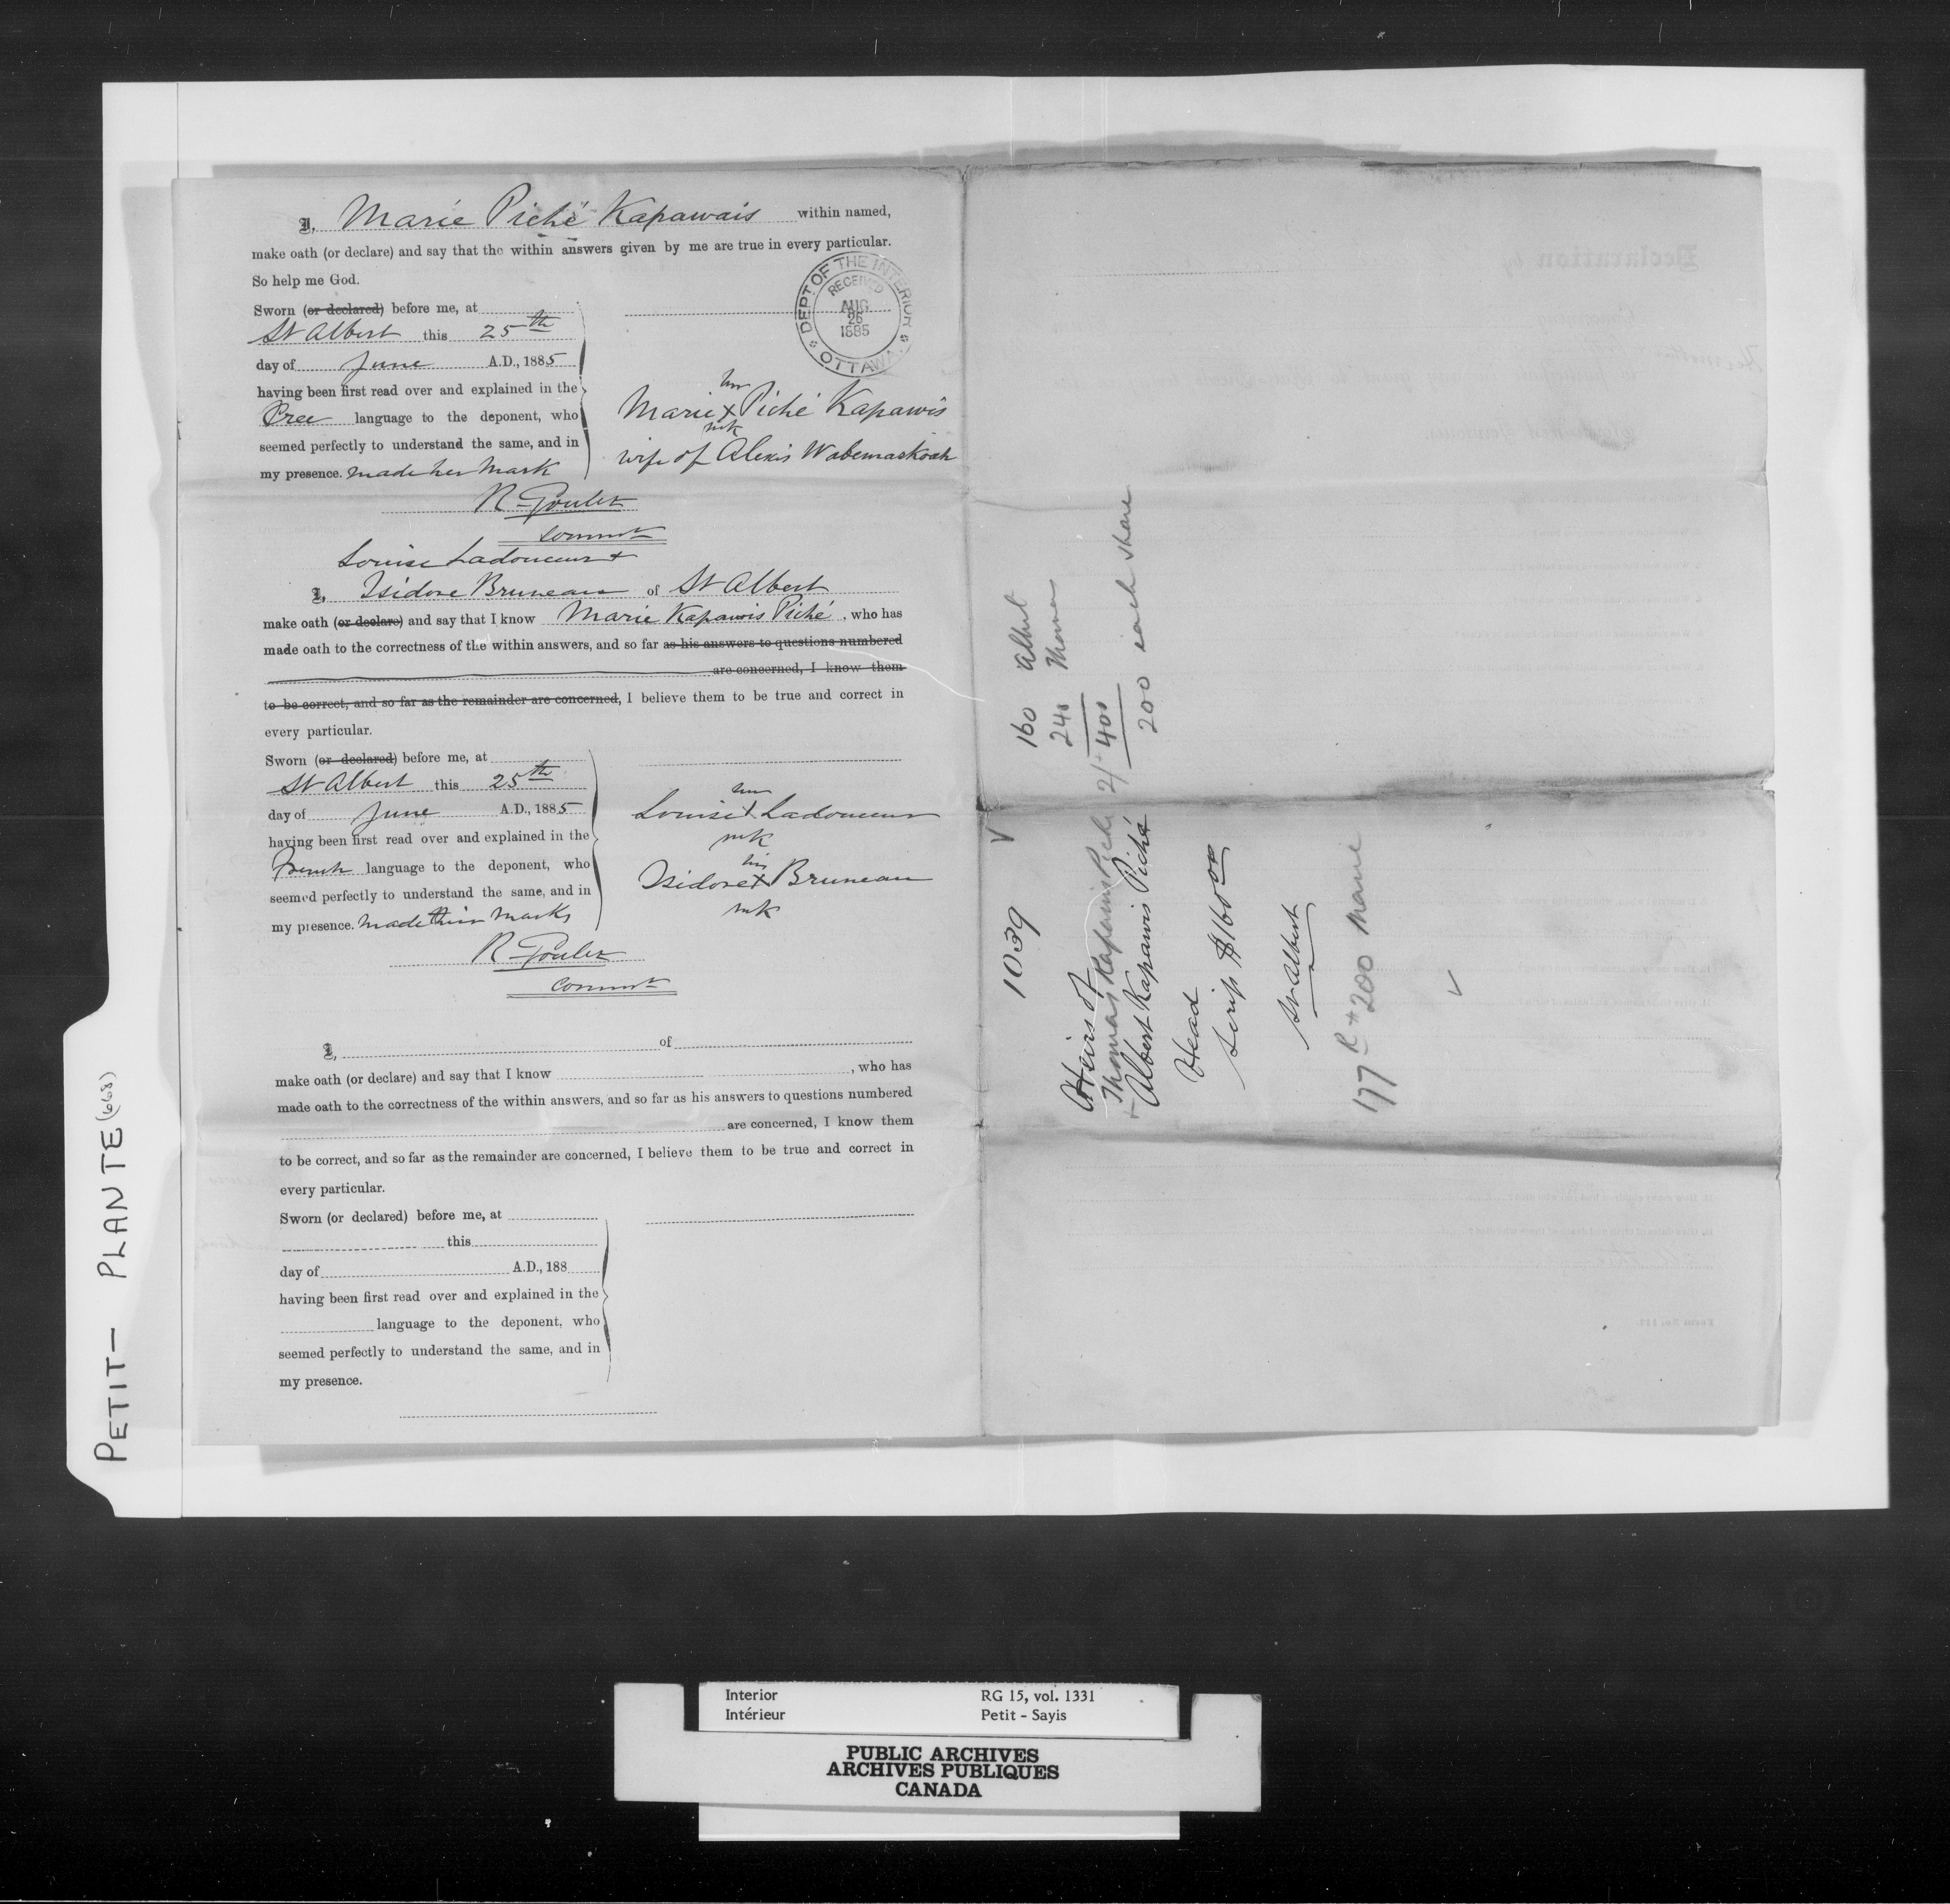 I, Marie Piché Kapawais within named,
make oath (or declare) and say that the within answers given by me are true in every particular.
So help me God.
Sworn (or declared) before me, at
St Albert this 25th
day of June A.D., 1885
having been first read over and explained in the
Cree language to the deponent, who
seemed perfectly to understand the same, and in
my presence. made her mark
DEPT OF THE INTERIOR
RECEIVED
AUG
26
1885
OTTAWA.
her
Marie x Piché Kapawis
mk
wife of Alexis Wabemaskoah
R Goulet
Commr
Louise Ladouceur +
I, Isidore Bruneau of St Albert
make oath (or declare) and say that I know Marie Kapawis Piché, who has
made oath to the correctness of the within answers, and so far as his answers to questions numbered
are concerned, I know them
to be correct, and so far as the remainder are concerned, I believe them to be true and correct in
every particular.
Sworn (or declared) before me, at
St Albert this 25th
day of June A.D., 1885
having been first read over and explained in the
French language to the deponent, who
seemed perfectly to understand the same, and in
my presence. made their marks
her
Louise x Ladouceur
mk
his
Isidore x Bruneau
mk
R Goulet
Commr
I, of
make oath (or declare) and say that I know , who has
made oath to the correctness of the within answers, and so far as his answers to questions numbered
are concerned, I know them
to be correct, and so far as the remainder are concerned, I believe them to be true and correct in
every particular.
Sworn (or declared) before me, at
this
day of A.D., 188
having been first read over and explained in the
language to the deponent, who
seemed perfectly to understand the same, and in
my presence.
160 Albert
240 Thomas
2/400
200 each share
1039
Heirs of
Thomas Kapawis Piché
+ Albert Kapawis Piché
Head
Scrip $160 00
St Albert
177 R + 200 Marie
Declaration by
PETIT - PLANTE (668)
Interior RG 15, vol. 1331
Intérieur Petit - Sayis
PUBLIC ARCHIVES
ARCHIVES PUBLIQUES
CANADA